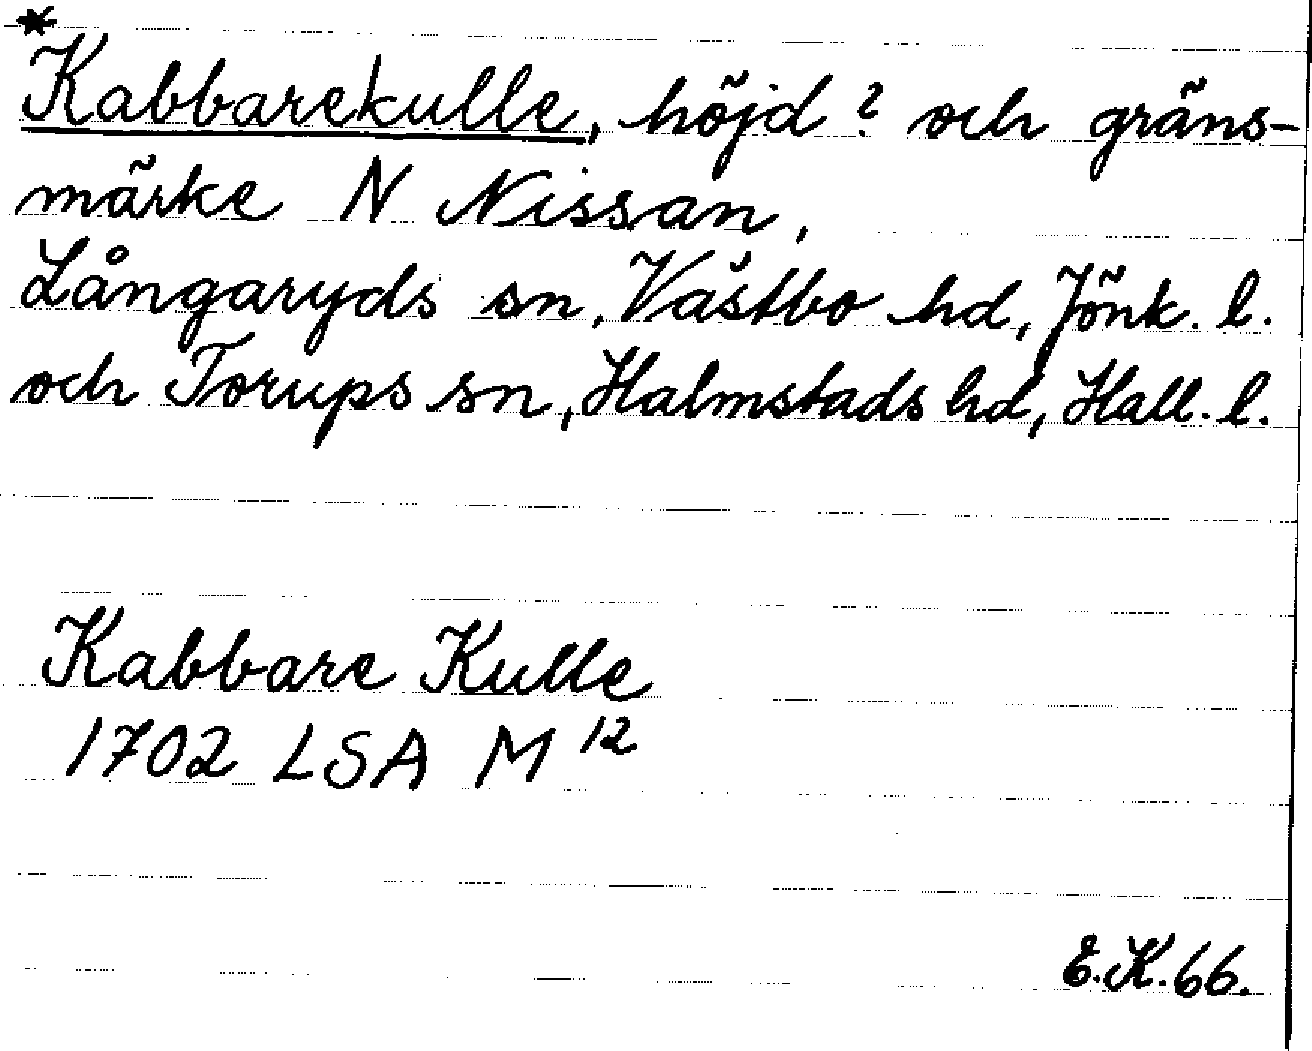 *
Kabbarekulle, höjd? och gräns-
märke N Nissan,
Långaryds sn, Västbo hd, Jönk. l.
och Torups sn, Halmstads hd, Hall. l.
Kabbare Kulle
1702 LSA M 12
E.K. 66.